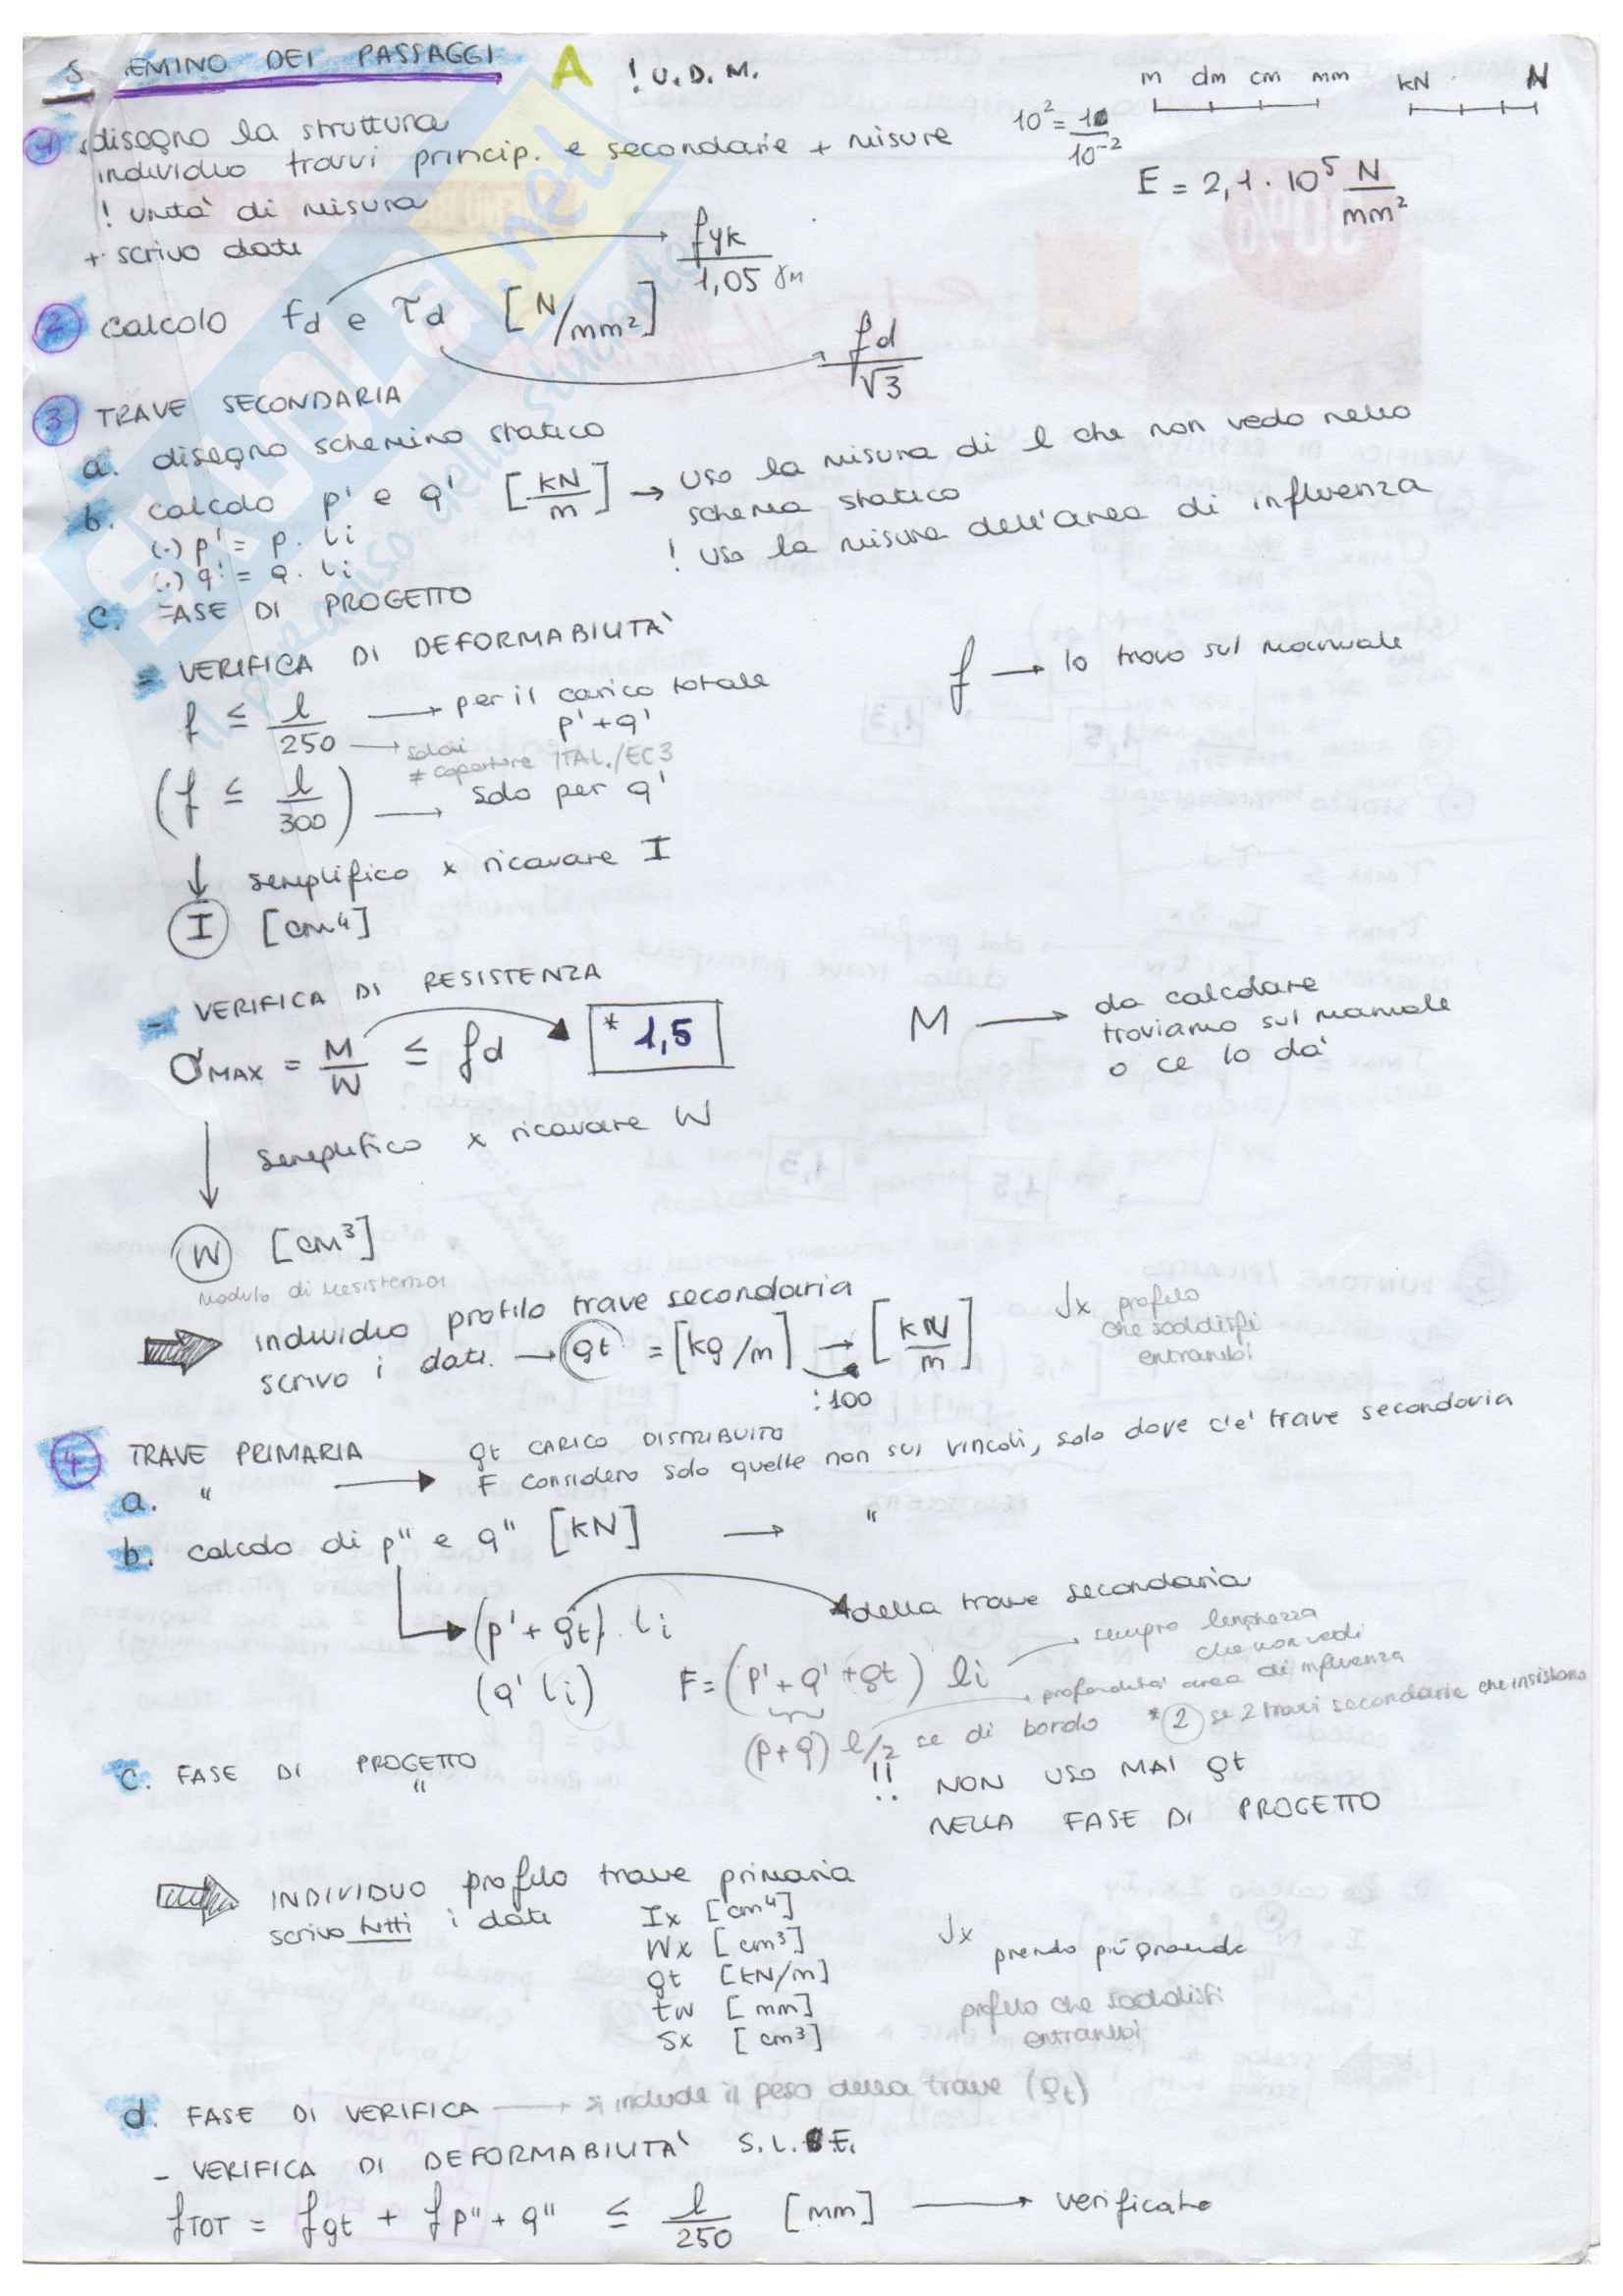 S EMINO DEI PASSAGGI A ! U.D.M.
m dm cm mm kN N
10² = 10/10⁻²
E = 2,1 · 10⁵ N/mm²
1 disegno la struttura
individuo travi princip. e secondarie + misure
! unità di misura
+ scrivo dati
fyk/1,05 γM
2 calcolo fd e τd [N/mm²]
fd/√3
3 TRAVE SECONDARIA
a. disegno schemino statico
b. calcolo p' e q' [kN/m] → uso la misura di l che non vedo nello
schema statico
! uso la misura dell'area di influenza
(·) p' = p · li
(·) q' = q · li
c. FASE DI PROGETTO
- VERIFICA DI DEFORMABILITÀ
f → lo trovo sul manuale
f ≤ l/250 → per il carico totale
p' + q'
→ solai
≠ coperture ITAL./EC3
(f ≤ l/300) → solo per q'
↓ semplifico x ricavare I
I [cm⁴]
- VERIFICA DI RESISTENZA
σMAX = M/W ≤ fd * 1,5
M → da calcolare
troviamo sul manuale
o ce lo dà
semplifico x ricavare W
W [cm³]
modulo di resistenza
individuo profilo trave secondaria
scrivo i dati → gt = [kg/m] → [kN/m]
:100
Jx profilo
che soddisfi
entrambi
4 TRAVE PRIMARIA gt CARICO DISTRIBUITO
a. " → F considero solo quelle non sui vincoli, solo dove c'è trave secondaria
b. calcolo di p" e q" [kN] → "
(p' + gt) · li della trave secondaria
(q' li) F = (p' + q' + gt) li → sempre lunghezza
che non vedi
→ profondità area di influenza
(p+q) l/2 se di bordo *2 se 2 travi secondarie che insistono
c. FASE DI PROGETTO
"
!! NON USO MAI gt
NELLA FASE DI PROGETTO
INDIVIDUO profilo trave primaria
scrivo tutti i dati
Ix [cm⁴]
Wx [cm³]
gt [kN/m]
tw [mm]
Sx [cm³]
Jx prendo più grande
profilo che soddisfi
entrambi
d. FASE DI VERIFICA → si include il peso della trave (gt)
- VERIFICA DI DEFORMABILITÀ S.L.E.
fTOT = fgt + fp"+q" ≤ l/250 [mm] → verificato